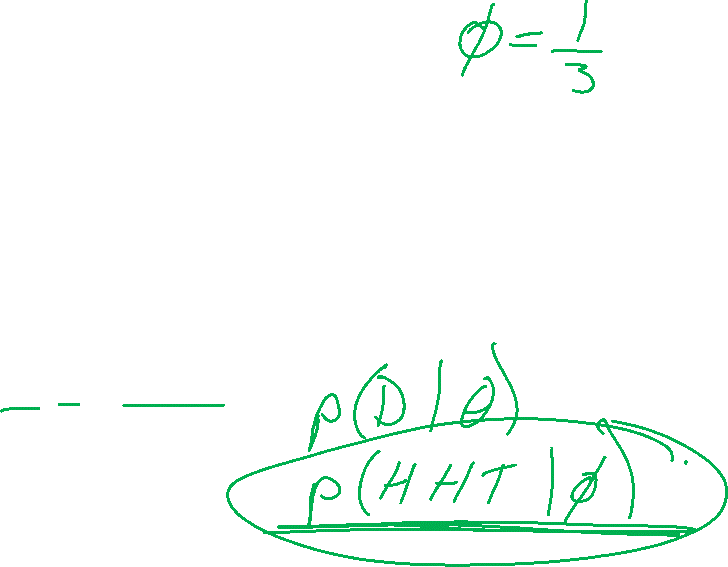 ϕ = 1/3
p(D | θ)
p(HHT | ϕ)